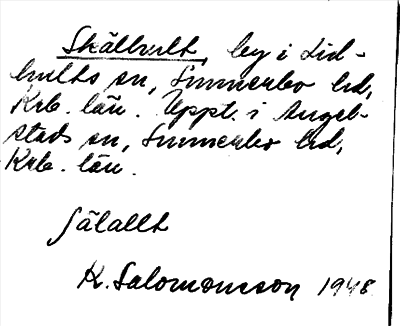 Skälhult, by i Lid-
hults sn, Sunnerbo hd,
Krb. län. Uppt. i Angel-
stads sn, Sunnerbo hd,
Krb. län.
Jälallt
K. Salomonsson 1948